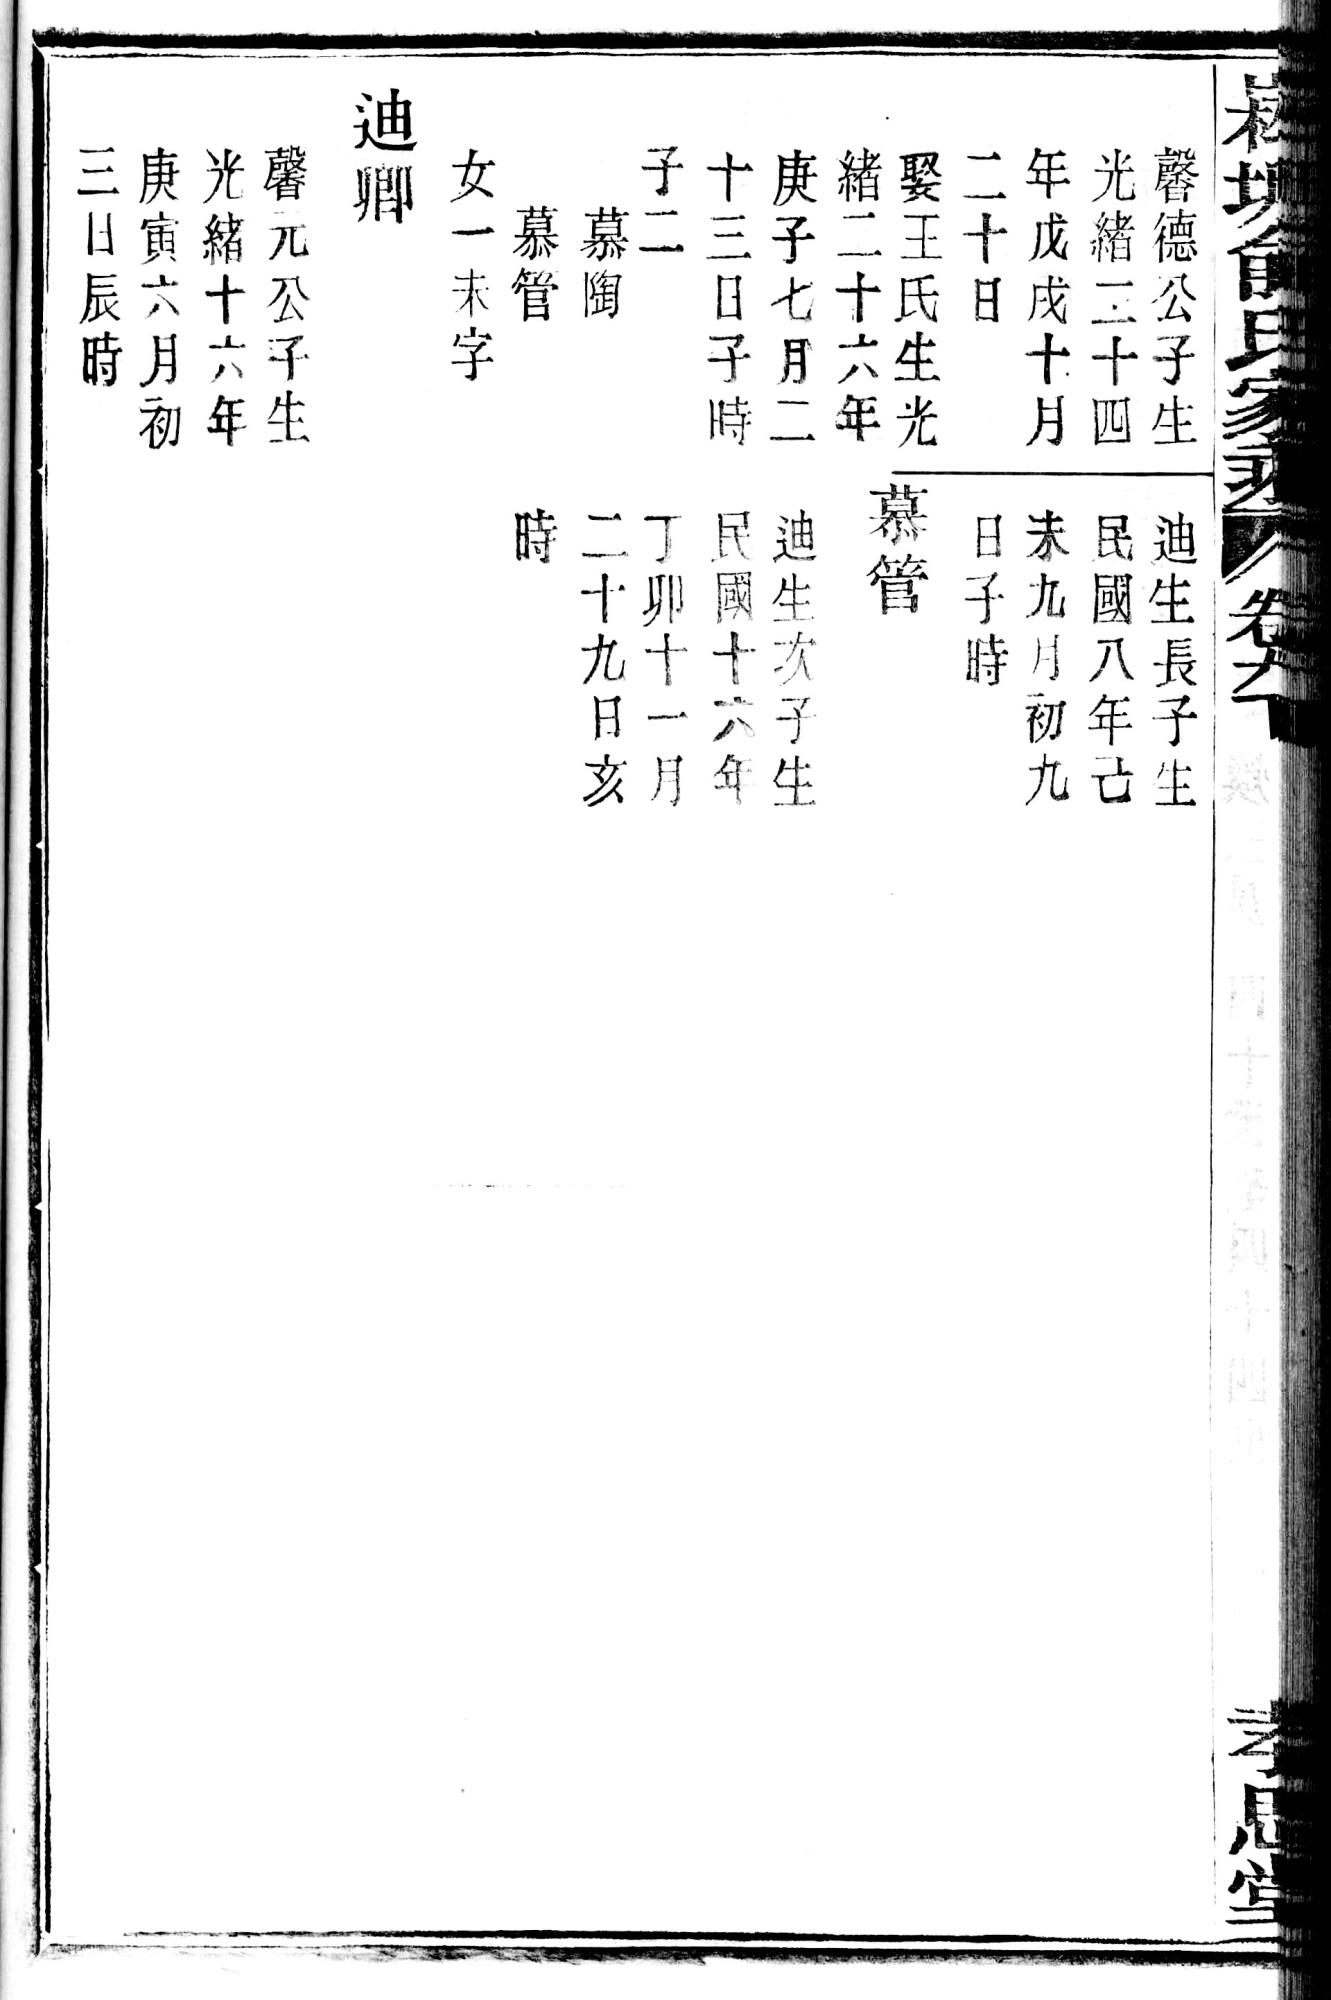 馨德公子生
光緒二十四
年戊戌十月
二十日
娶王氏生光
緒二十六年
庚子七月二
十三日子時
子二
慕陶
慕管
女一未字
迪卿
馨元公子生
光緒十六年
庚寅六月初
三日辰時
迪生長子生
民國八年己
未九月初九
日子時
慕管
迪生次子生
民國十六年
丁卯十一月
二十九日亥
時
氏家
卷九
孝思堂